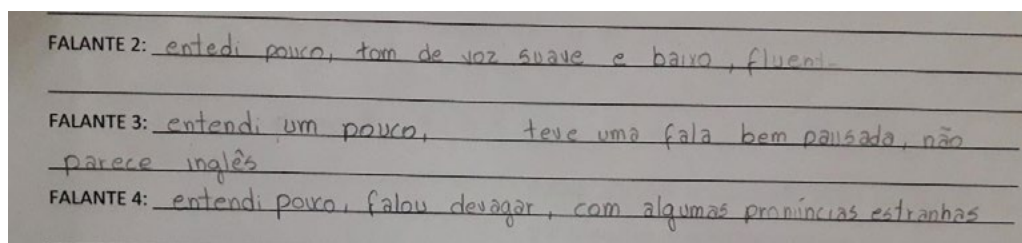 FALANTE 2: entedi pouco, tom de voz suave e baixo, fluent
FALANTE 3: entendi um pouco, teve uma fala bem pausada, não
parece inglês
FALANTE 4: entendi pouco, falou devagar, com algumas pronúncias estranhas